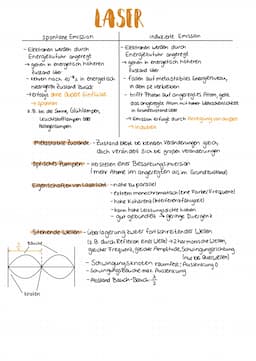 LASER
spontane Emission
- Elektronen werden durch Energiezufuhr angeregt
→ gehen in energetisch höheren Zustand über
→ kehren nach 10⁻⁸ s in energetisch niedrigeren Zustand zurück
→ erfolgt ohne äußere Einflüsse
→ spontan
z.B. bei der Sonne, Glühlampen, Leuchtstofflampen oder
induzierte Emission
- Elektronen werden durch Energiezufuhr angeregt
→ gehen in energetisch höheren Zustand über
- fallen auf metastabiles Energieniveau, in dem sie verbleiben
- trifft Photon auf angeregtes Atom, geht das angeregte Atom mit hoher Wahrscheinlichkeit in Grundzustand über
→ Emission erfolgt durch Anregung von außen
→ induziert
Metastabile Zustände - Zustand bleibt bei kleinen Veränderungen gleich, doch verändert sich bei großen Veränderungen
Optisches Pumpen - Herstellen einer Besetzungsinversion
(mehr Atome im angeregten als im Grundzustand)
Eigenschaften von Laserlicht - nahezu parallel
- extrem monochromatisch (eine Farbe/Frequenz)
- hohe Kohärenz (Interferenzfähigkeit)
- kann hohe Leistungsdichte haben
- gut gebündelt → geringe Divergenz
Stehende Wellen - Überlagerung zweier fortschreitender Wellen
(z.B. durch Reflexion einer Welle) → 2 harmonische Wellen, gleicher Frequenz, gleicher Amplitude, Schwingungsrichtung
(nur bei Querwellen)
- Schwingungsknoten raumfest; Auslenkung 0
- Schwingungsbäuche max. Auslenkung
- Abstand Bauch-Bauch λ/2
Bäuche
Knoten